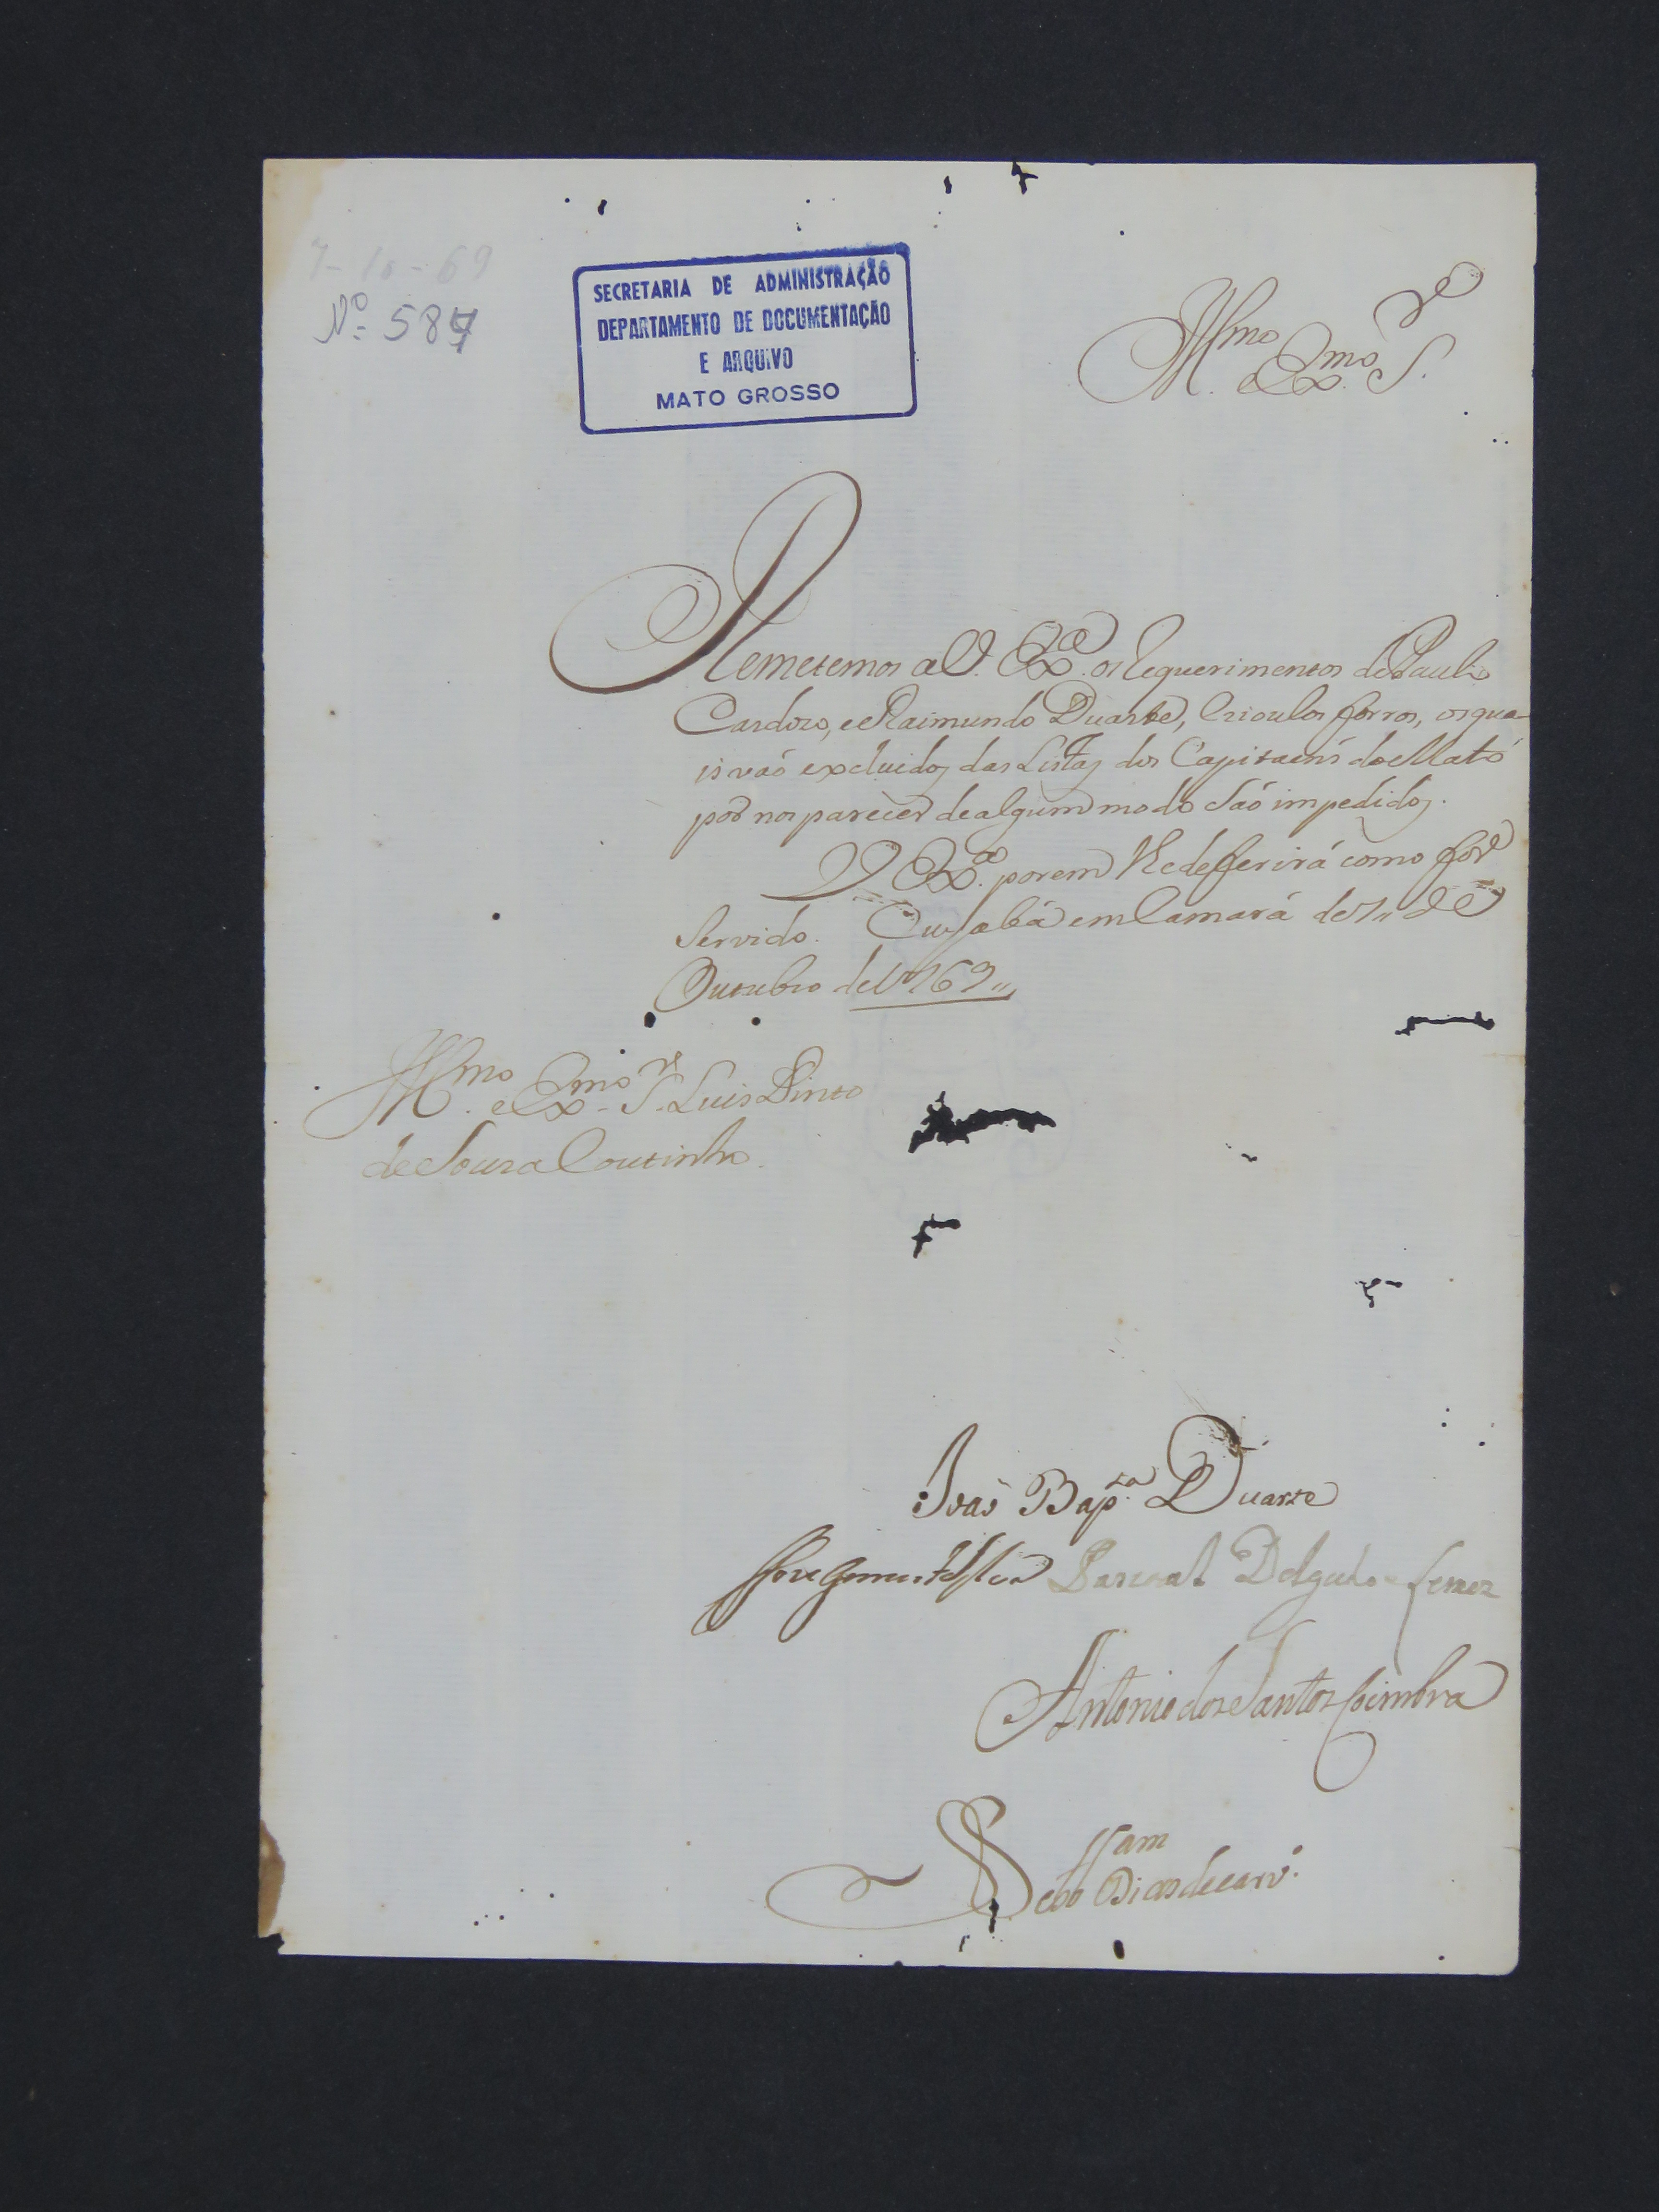 7-10-69
Nº 587
SECRETARIA DE ADMINISTRAÇÃO
DEPARTAMENTO DE DOCUMENTAÇÃO
E ARQUIVO
MATO GROSSO
Illmo e Exmo Sr.
Remetemos a V. Exa. os Requerimentos de Paulo
Cardozo, e Raimundo Duarte, Crioulos forros, os qua-
is vaó excluidos das Listas dos Capitaens do Mato
por nos parecer de algum modo Saó impedidos.
V Exa. porem lhe deferirá como for
Servido. Cuyabá em Camará de 7,, de
Outubro de 1769,,
Illmo e Exmo Sr. Luis Pinto
de Souza Coutinho.
Joaó Bapta. Duarte
Pascoal Delgado
Antonio dos Santos Coimbra
Dias de Carvº.